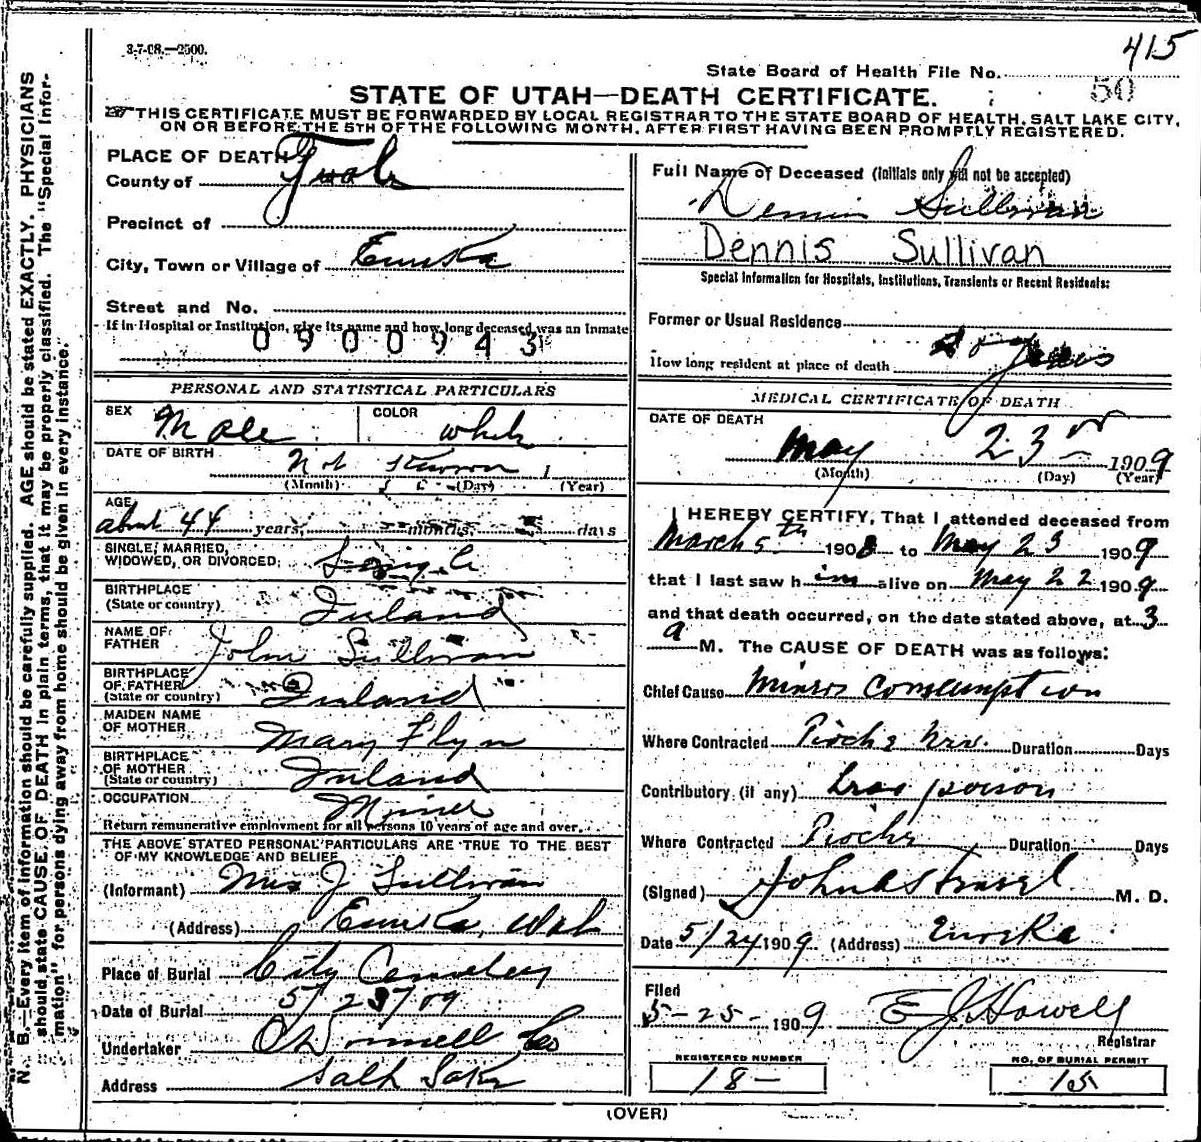 415
3-7-08.—2500.
State Board of Health File No.
50
STATE OF UTAH—DEATH CERTIFICATE.
THIS CERTIFICATE MUST BE FORWARDED BY LOCAL REGISTRAR TO THE STATE BOARD OF HEALTH, SALT LAKE CITY,
ON OR BEFORE THE 5TH OF THE FOLLOWING MONTH, AFTER FIRST HAVING BEEN PROMPTLY REGISTERED.
N. B.—Every item of information should be carefully supplied. AGE should be stated EXACTLY. PHYSICIANS
should state CAUSE OF DEATH in plain terms, that it may be properly classified. The "Special Infor-
mation" for persons dying away from home should be given in every instance.
PLACE OF DEATH
County of
Precinct of
City, Town or Village of Eureka
Street and No.
If in Hospital or Institution, give its name and how long deceased was an Inmate
0900943
PERSONAL AND STATISTICAL PARTICULARS
SEX Male COLOR White
DATE OF BIRTH Not Known 1
(Month) (Day) (Year)
AGE
about 44 years, months, days
SINGLE, MARRIED,
WIDOWED, OR DIVORCED: Single
BIRTHPLACE
(State or country) Ireland
NAME OF
FATHER John Sullivan
BIRTHPLACE
OF FATHER
(State or country) Ireland
MAIDEN NAME
OF MOTHER Mary Flyn
BIRTHPLACE
OF MOTHER
(State or country) Ireland
OCCUPATION Miner
Return remunerative employment for all persons 10 years of age and over.
THE ABOVE STATED PERSONAL PARTICULARS ARE TRUE TO THE BEST
OF MY KNOWLEDGE AND BELIEF
(Informant) Mrs J Sullivan
(Address) Eureka, Utah
Place of Burial City Cemetery
Date of Burial 5/23/09
Undertaker O'Donnell Co
Address Salt Lake
Full Name of Deceased (Initials only will not be accepted)
Dennis Sullivan
Dennis Sullivan
Special Information for Hospitals, Institutions, Transients or Recent Residents:
Former or Usual Residence
How long resident at place of death years
MEDICAL CERTIFICATE OF DEATH
DATE OF DEATH
May 23 1909
(Month) (Day) (Year)
I HEREBY CERTIFY, That I attended deceased from
March 5th 1908 to May 23 1909
that I last saw him alive on May 22 1909
and that death occurred, on the date stated above, at 3
a M. The CAUSE OF DEATH was as follows:
Chief Cause Miners Consumption
Where Contracted Pioche Nev. Duration Days
Contributory (if any) Lead poison
Where Contracted Pioche Duration Days
(Signed) M. D.
Date 5/24 1909 (Address) Eureka
Filed
5-25- 1909 E J Howell
Registrar
REGISTERED NUMBER
18-
NO. OF BURIAL PERMIT
15
(OVER)